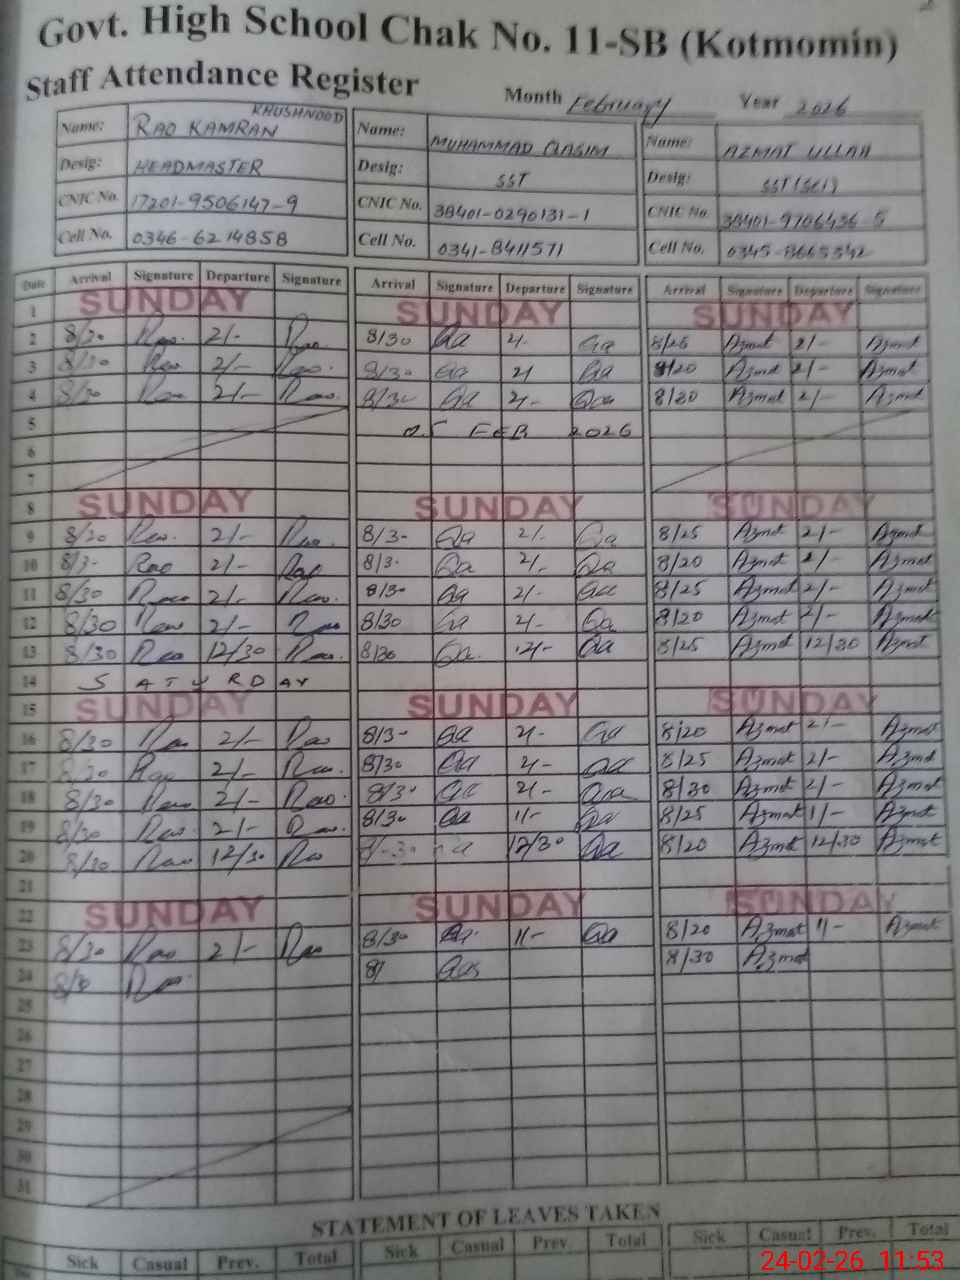 Govt. High School Chak No. 11-SB (Kotmomin)
Staff Attendance Register
Month February Year 2026
Name: RAO KAMRAN KHUSHNOOD Name: MUHAMMAD QASIM Name: AZMAT ULLAH
Desig: HEADMASTER Desig: SST Desig: SST (SCI)
CNIC No. 17201-9506147-9 CNIC No. 38401-0290131-1 CNIC No. 38401-9706436-5
Cell No. 0346-6214858 Cell No. 0341-8411571 Cell No. 0345-8665342
Date Arrival Signature Departure Signature Arrival Signature Departure Signature Arrival Signature Departure Signature
1 SUNDAY SUNDAY SUNDAY
2 8/30 Rao 2/- Rao 8/30 Qa 2/- Qa 8/25 Azmat 2/- Azmat
3 8/30 Rao 2/- Rao 8/30 Qa 2/ Qa 8/20 Azmat 2/- Azmat
4 8/30 Rao 2/- Rao 8/30 Qa 2/- Qaa 8/30 Azmat 2/- Azmat
5 05 FEB 2026
6
7
8 SUNDAY SUNDAY SUNDAY
9 8/30 Rao 2/- Rao 8/3- Qa 2/- Qa 8/25 Azmat 2/- Azmat
10 8/3- Rao 2/- Rao 8/3- Qa 2/- Qa 8/20 Azmat 2/- Azmat
11 8/30 Rao 2/- Rao 8/30 Qa 2/- Qaa 8/25 Azmat 2/- Azmat
12 8/30 Rao 2/- Rao 8/30 Qa 2/- Qa 8/20 Azmat 2/- Azmat
13 8/30 Rao 12/30 Rao 8/30 Qa 12/- Qa 8/25 Azmat 12/30 Azmat
14 SATURDAY
15 SUNDAY SUNDAY SUNDAY
16 8/30 Rao 2/- Rao 8/3- Qa 2/- Qa 8/20 Azmat 2/- Azmat
17 8/30 Rao 2/- Rao 8/30 Qa 2/- Qaa 8/25 Azmat 2/- Azmat
18 8/30 Rao 2/- Rao 8/30 Qa 2/- Qaa 8/30 Azmat 2/- Azmat
19 8/30 Rao 2/- Rao 8/30 Qa 11/- Qa 8/25 Azmat 1/- Azmat
20 8/30 Rao 12/30 Rao Qa 12/30 Qa 8/20 Azmat 12/30 Azmat
21
22 SUNDAY SUNDAY SUNDAY
23 8/30 Rao 2/- Rao 8/30 Qa 11/- Qa 8/20 Azmat 11/- Azmat
24 Rao 8/ Qas 8/30 Azmat
25
26
27
28
29
30
31
STATEMENT OF LEAVES TAKEN
Sick Casual Prev. Total Sick Casual Prev. Total Sick Casual Prev. Total
24-02-26 11:53